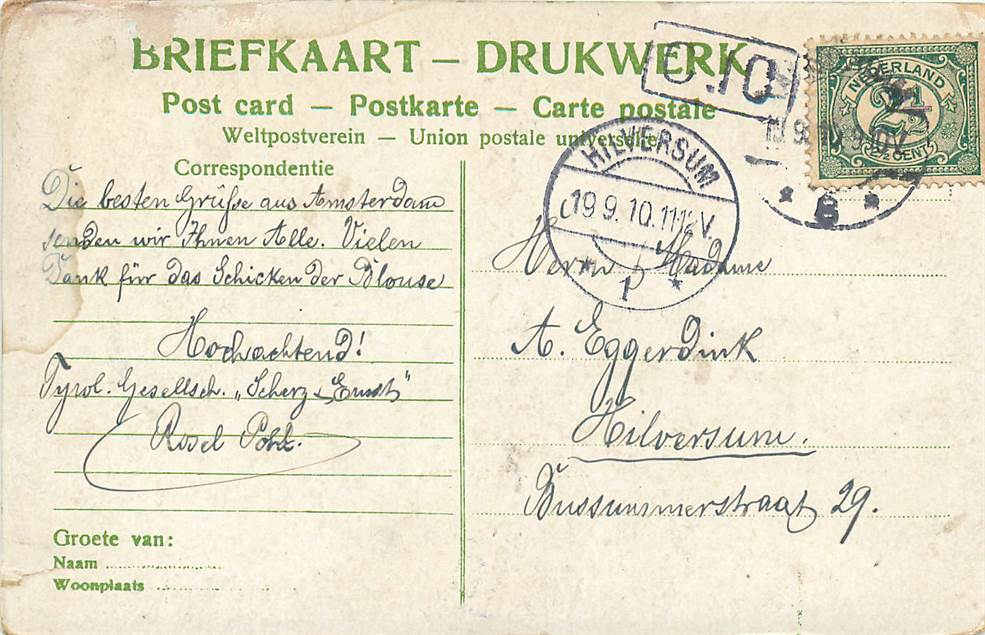 BRIEFKAART — DRUKWERK
Post card — Postkarte — Carte postale
Weltpostverein — Union postale universelle
Correspondentie
Die besten Grüße aus Amsterdam
senden wir Ihnen Alle. Vielen
Dank für das Schicken der Blouse
Hochachtend!
Tyrol. Gesellsch. „Scherz & Ernst"
Rosel
Groete van:
Naam
Woonplaats
NEDERLAND
2½
2½ CENT
HILVERSUM
19 9.10.11-12V.
1
6
Herrn & Madame
A. Eggerdink
Hilversum.
Bussummerstraat 29.